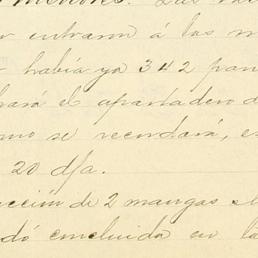 menores. Las
entraron á las m
había ya 342 pan
ará el apartadero d
omo se recordará, es
20 d/a.
cción de 2 mangas el
dó concluida en la